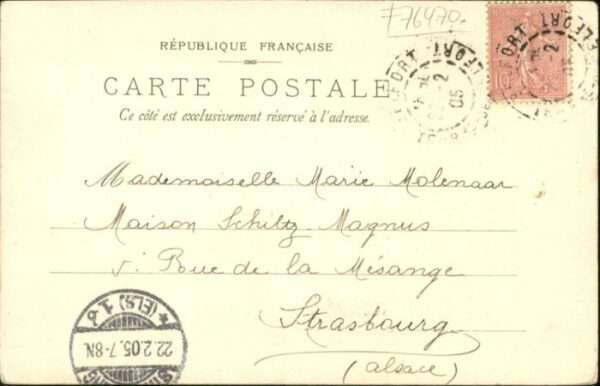 F76470.
RÉPUBLIQUE FRANÇAISE
CARTE POSTALE
Ce côté est exclusivement réservé à l'adresse.
BELFORT
05
Mademoiselle Marie Molenaar
Maison Schiltz Magnus
5 Rue de la Mésange
Strasbourg
(Alsace)
(ELS) 1 b
22.2.05.7-8N.